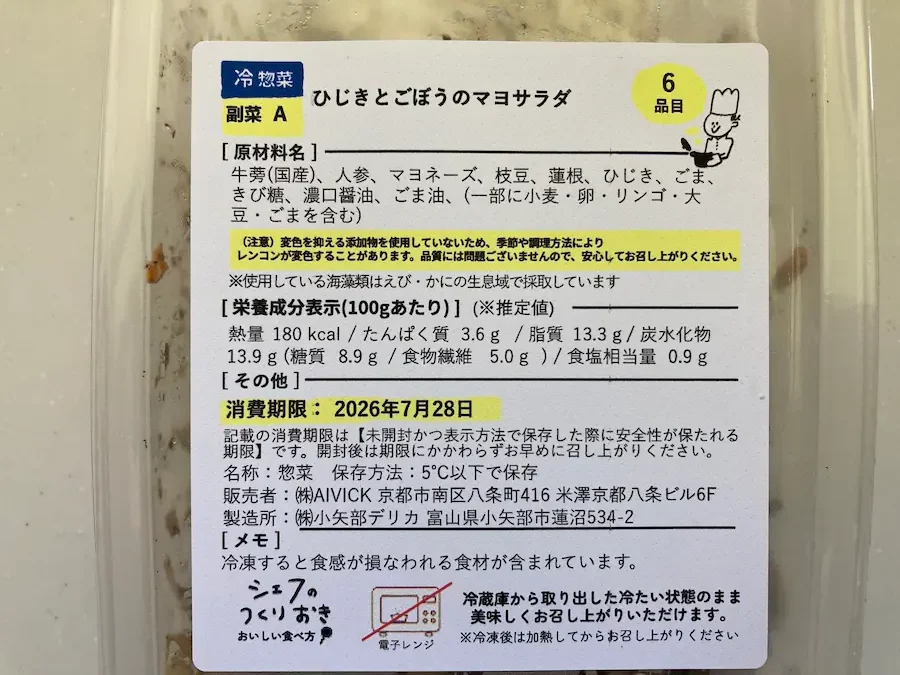 冷 惣菜
副菜 A
ひじきとごぼうのマヨサラダ
6
品目
[ 原材料名 ]
牛蒡(国産)、人参、マヨネーズ、枝豆、蓮根、ひじき、ごま、
きび糖、濃口醤油、ごま油、(一部に小麦・卵・リンゴ・大
豆・ごまを含む)
（注意）変色を抑える添加物を使用していないため、季節や調理方法により
レンコンが変色することがあります。品質には問題ございませんので、安心してお召し上がりください。
※使用している海藻類はえび・かにの生息域で採取しています
[ 栄養成分表示(100gあたり) ] (※推定値)
熱量 180 kcal / たんぱく質 3.6 g / 脂質 13.3 g / 炭水化物
13.9 g (糖質 8.9 g / 食物繊維 5.0 g ) / 食塩相当量 0.9 g
[ その他 ]
消費期限： 2026年7月28日
記載の消費期限は【未開封かつ表示方法で保存した際に安全性が保たれる
期限】です。開封後は期限にかかわらずお早めに召し上がりください。
名称：惣菜 保存方法：5℃以下で保存
販売者：㈱AIVICK 京都市南区八条町416 米澤京都八条ビル6F
製造所：㈱小矢部デリカ 富山県小矢部市蓮沼534-2
[ メモ ]
冷凍すると食感が損なわれる食材が含まれています。
シェフの
つくりおき
おいしい食べ方
電子レンジ
冷蔵庫から取り出した冷たい状態のまま
美味しくお召し上がりいただけます。
※冷凍後は加熱してからお召し上がりください